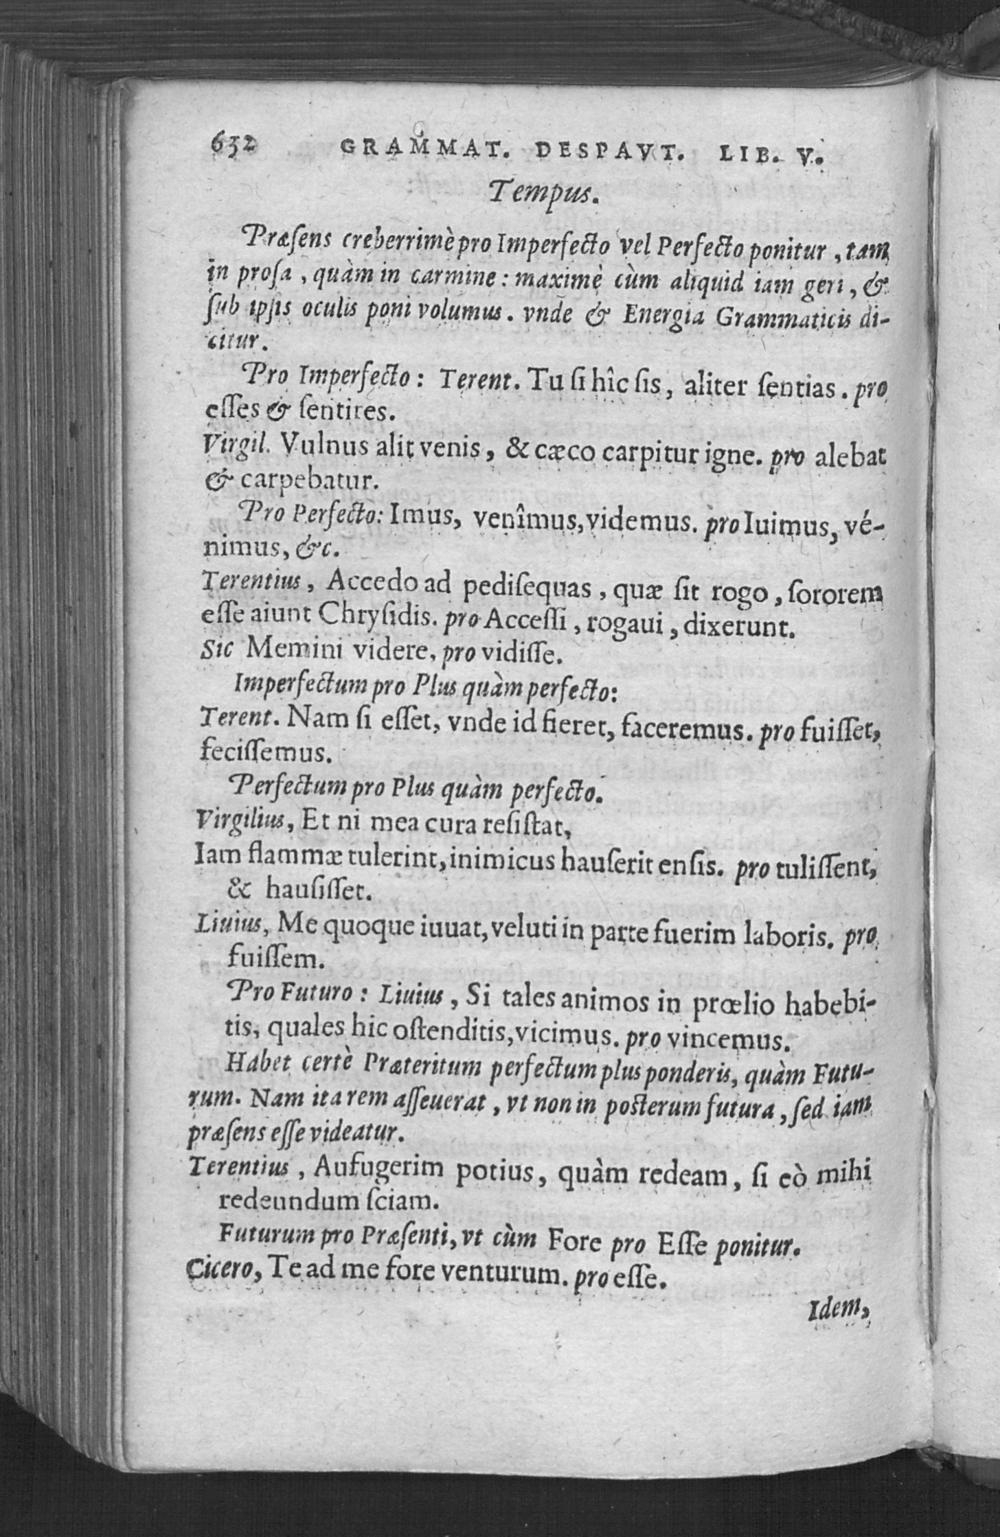 632 GRAMMAT. DESPAVT. LIB. V.
Tempus.
Præſens creberrimè pro Imperfecto vel Perfecto ponitur, tam
in proſa, quàm in carmine: maximè cùm aliquid iam geri, &
ſub ipſis oculis poni volumus. vnde & Energia Grammaticis di-
citur.
Pro Imperfecto: Terent. Tu ſi hîc ſis, aliter ſentias. pro
eſſes & ſentires.
Virgil. Vulnus alit venis, & cæco carpitur igne. pro alebat
& carpebatur.
Pro Perfecto: Imus, venîmus, videmus. pro Iuimus, vé-
nimus, &c.
Terentius, Accedo ad pediſequas, quæ ſit rogo, ſororem
eſſe aiunt Chryſidis. pro Acceſſi, rogaui, dixerunt.
Sic Memini videre, pro vidiſſe.
Imperfectum pro Plus quàm perfecto:
Terent. Nam ſi eſſet, vnde id fieret, faceremus. pro fuiſſet,
feciſſemus.
Perfectum pro Plus quàm perfecto.
Virgilius, Et ni mea cura reſiſtat,
Iam flammæ tulerint, inimicus hauſerit enſis. pro tuliſſent,
& hauſiſſet.
Liuius, Me quoque iuuat, veluti in parte fuerim laboris. pro
fuiſſem.
Pro Futuro: Liuius, Si tales animos in prœlio habebi-
tis, quales hic oſtenditis, vicimus. pro vincemus.
Habet certè Præteritum perfectum plus ponderis, quàm Futu-
rum. Nam ita rem aſſeuerat, vt non in poſterum futura, ſed iam
præſens eſſe videatur.
Terentius, Aufugerim potius, quàm redeam, ſi eò mihi
redeundum ſciam.
Futurum pro Præſenti, vt cùm Fore pro Eſſe ponitur.
Cicero, Te ad me fore venturum. pro eſſe.
Idem,